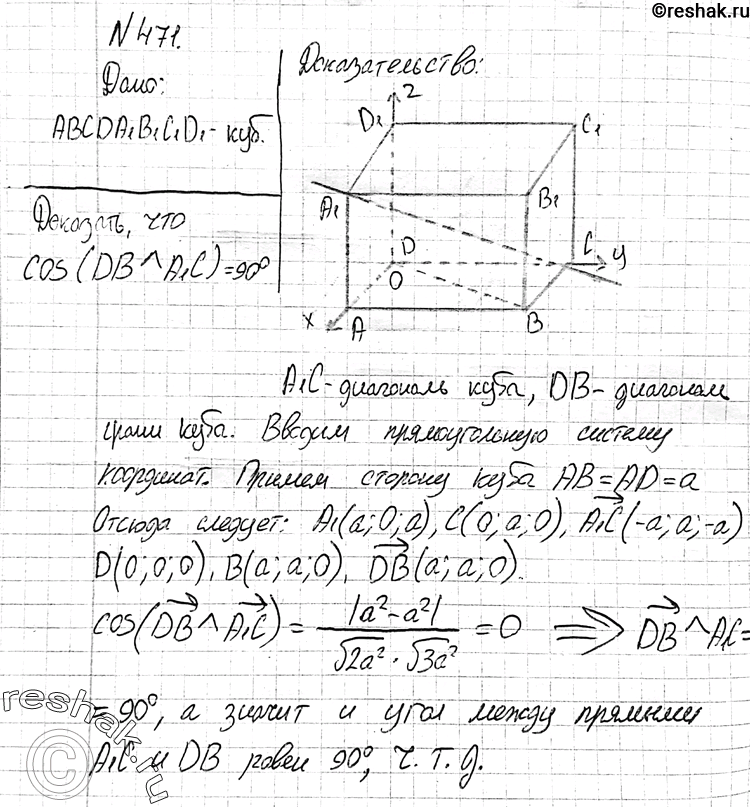 ©reshak.ru
N 471.
Дано:
ABCDA₁B₁C₁D₁- куб.
Доказать, что
cos (DB ^ A₁C) = 90°
Доказательство:
z
D₁
C₁
A₁
B₁
D
C
y
O
x
A
B
A₁C-диагональ куба, DB- диагональ
грани куба. Вводим прямоугольную систему
координат. Примем сторону куба AB=AD=a
Отсюда следует: A₁(a;0;a), C(0;a;0), A₁C(-a;a;-a)
D(0;0;0), B(a;a;0), DB(a;a;0).
cos(DB ^ A₁C) = |a²-a²| / √2a² · √3a² = 0 ⟹ DB ^ A₁C=
= 90°, а значит и угол между прямыми
A₁C и DB равен 90°, ч. т. д.
reshak.ru
©